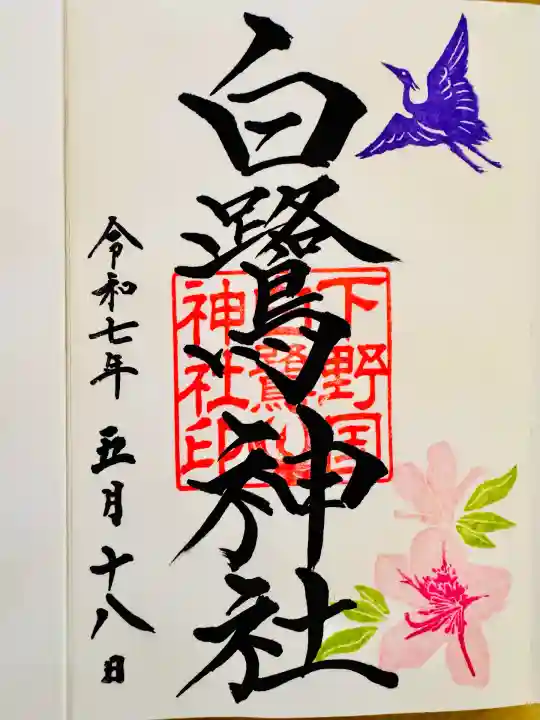 白鷺神社
下野国
白鷺山
神社印
令和七年 五月十八日